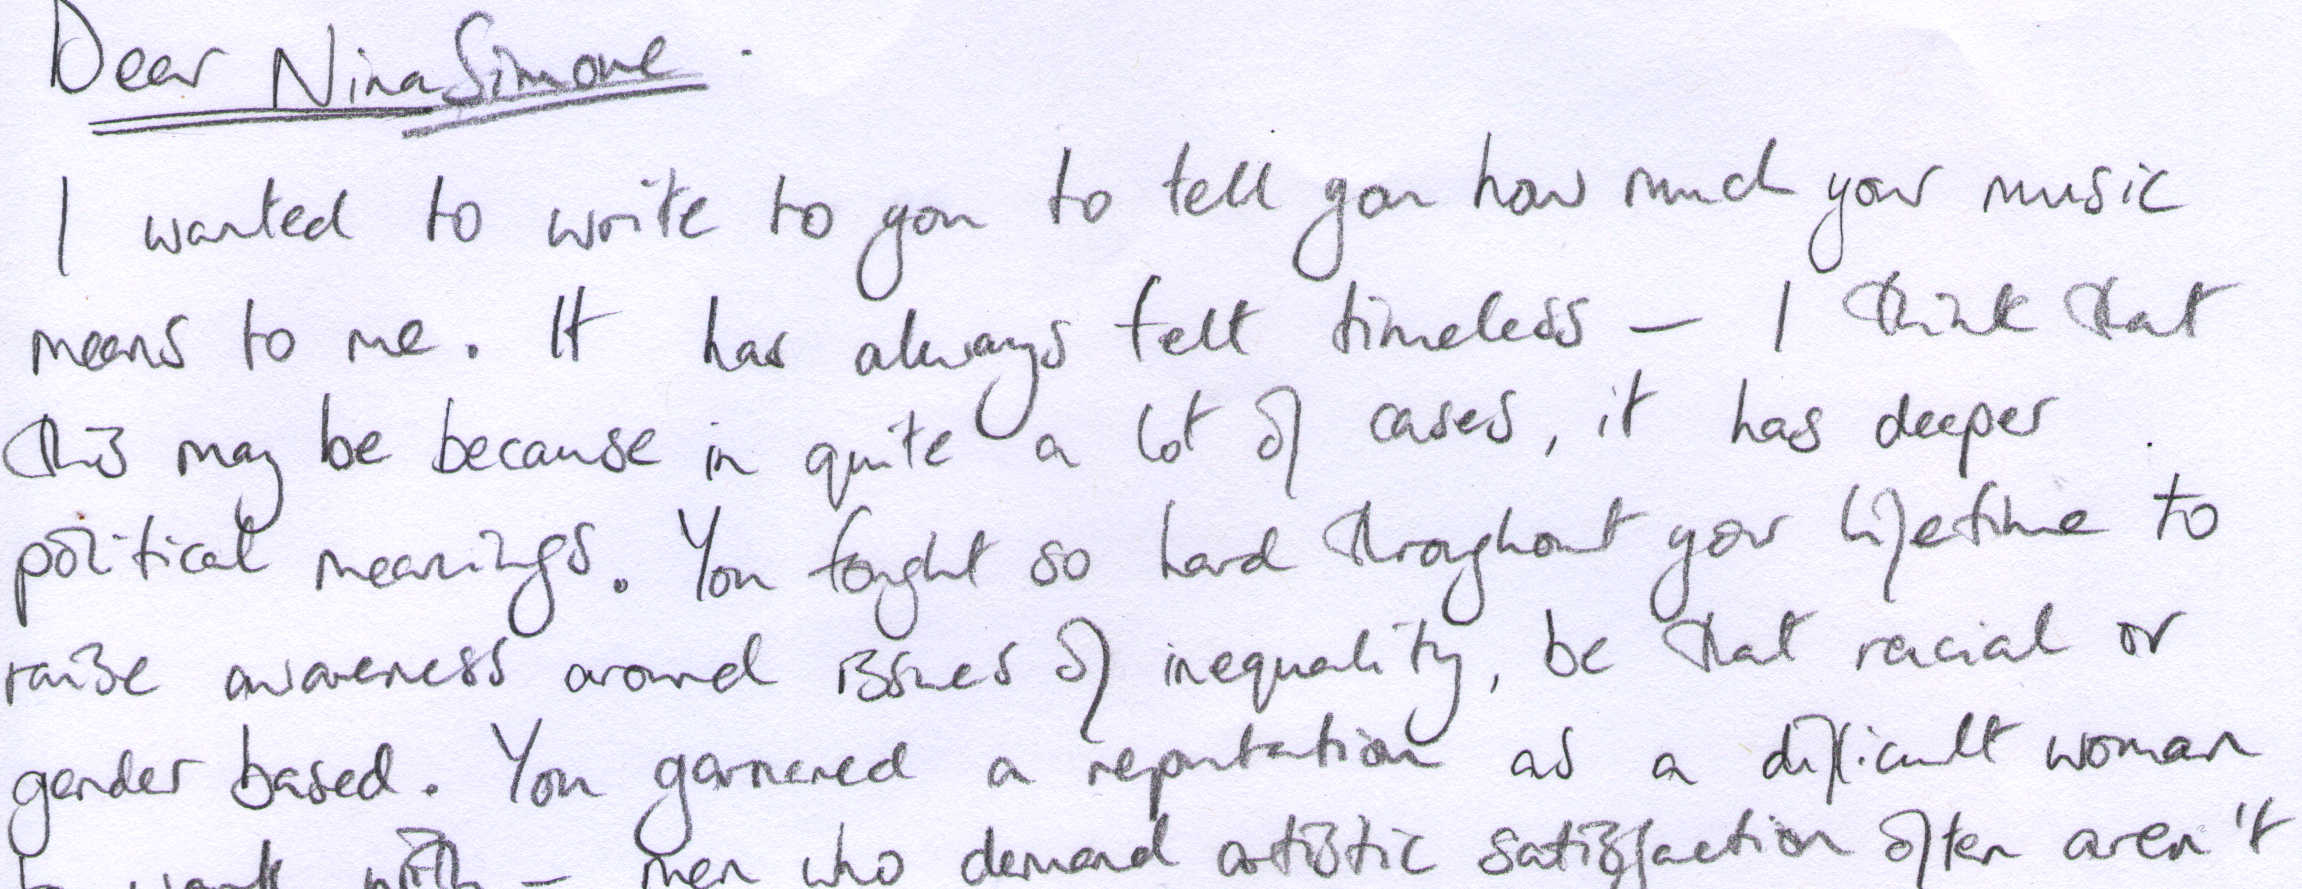 Dear Nina Simone.
I wanted to write to you to tell you how much your music
means to me. It has always felt timeless – I think that
this may be because in quite a lot of cases, it has deeper
political meanings. You fought so hard throughout your lifetime to
raise awareness around issues of inequality, be that racial or
gender based. You garnered a reputation as a difficult woman
to work with – men who demand artistic satisfaction often aren't